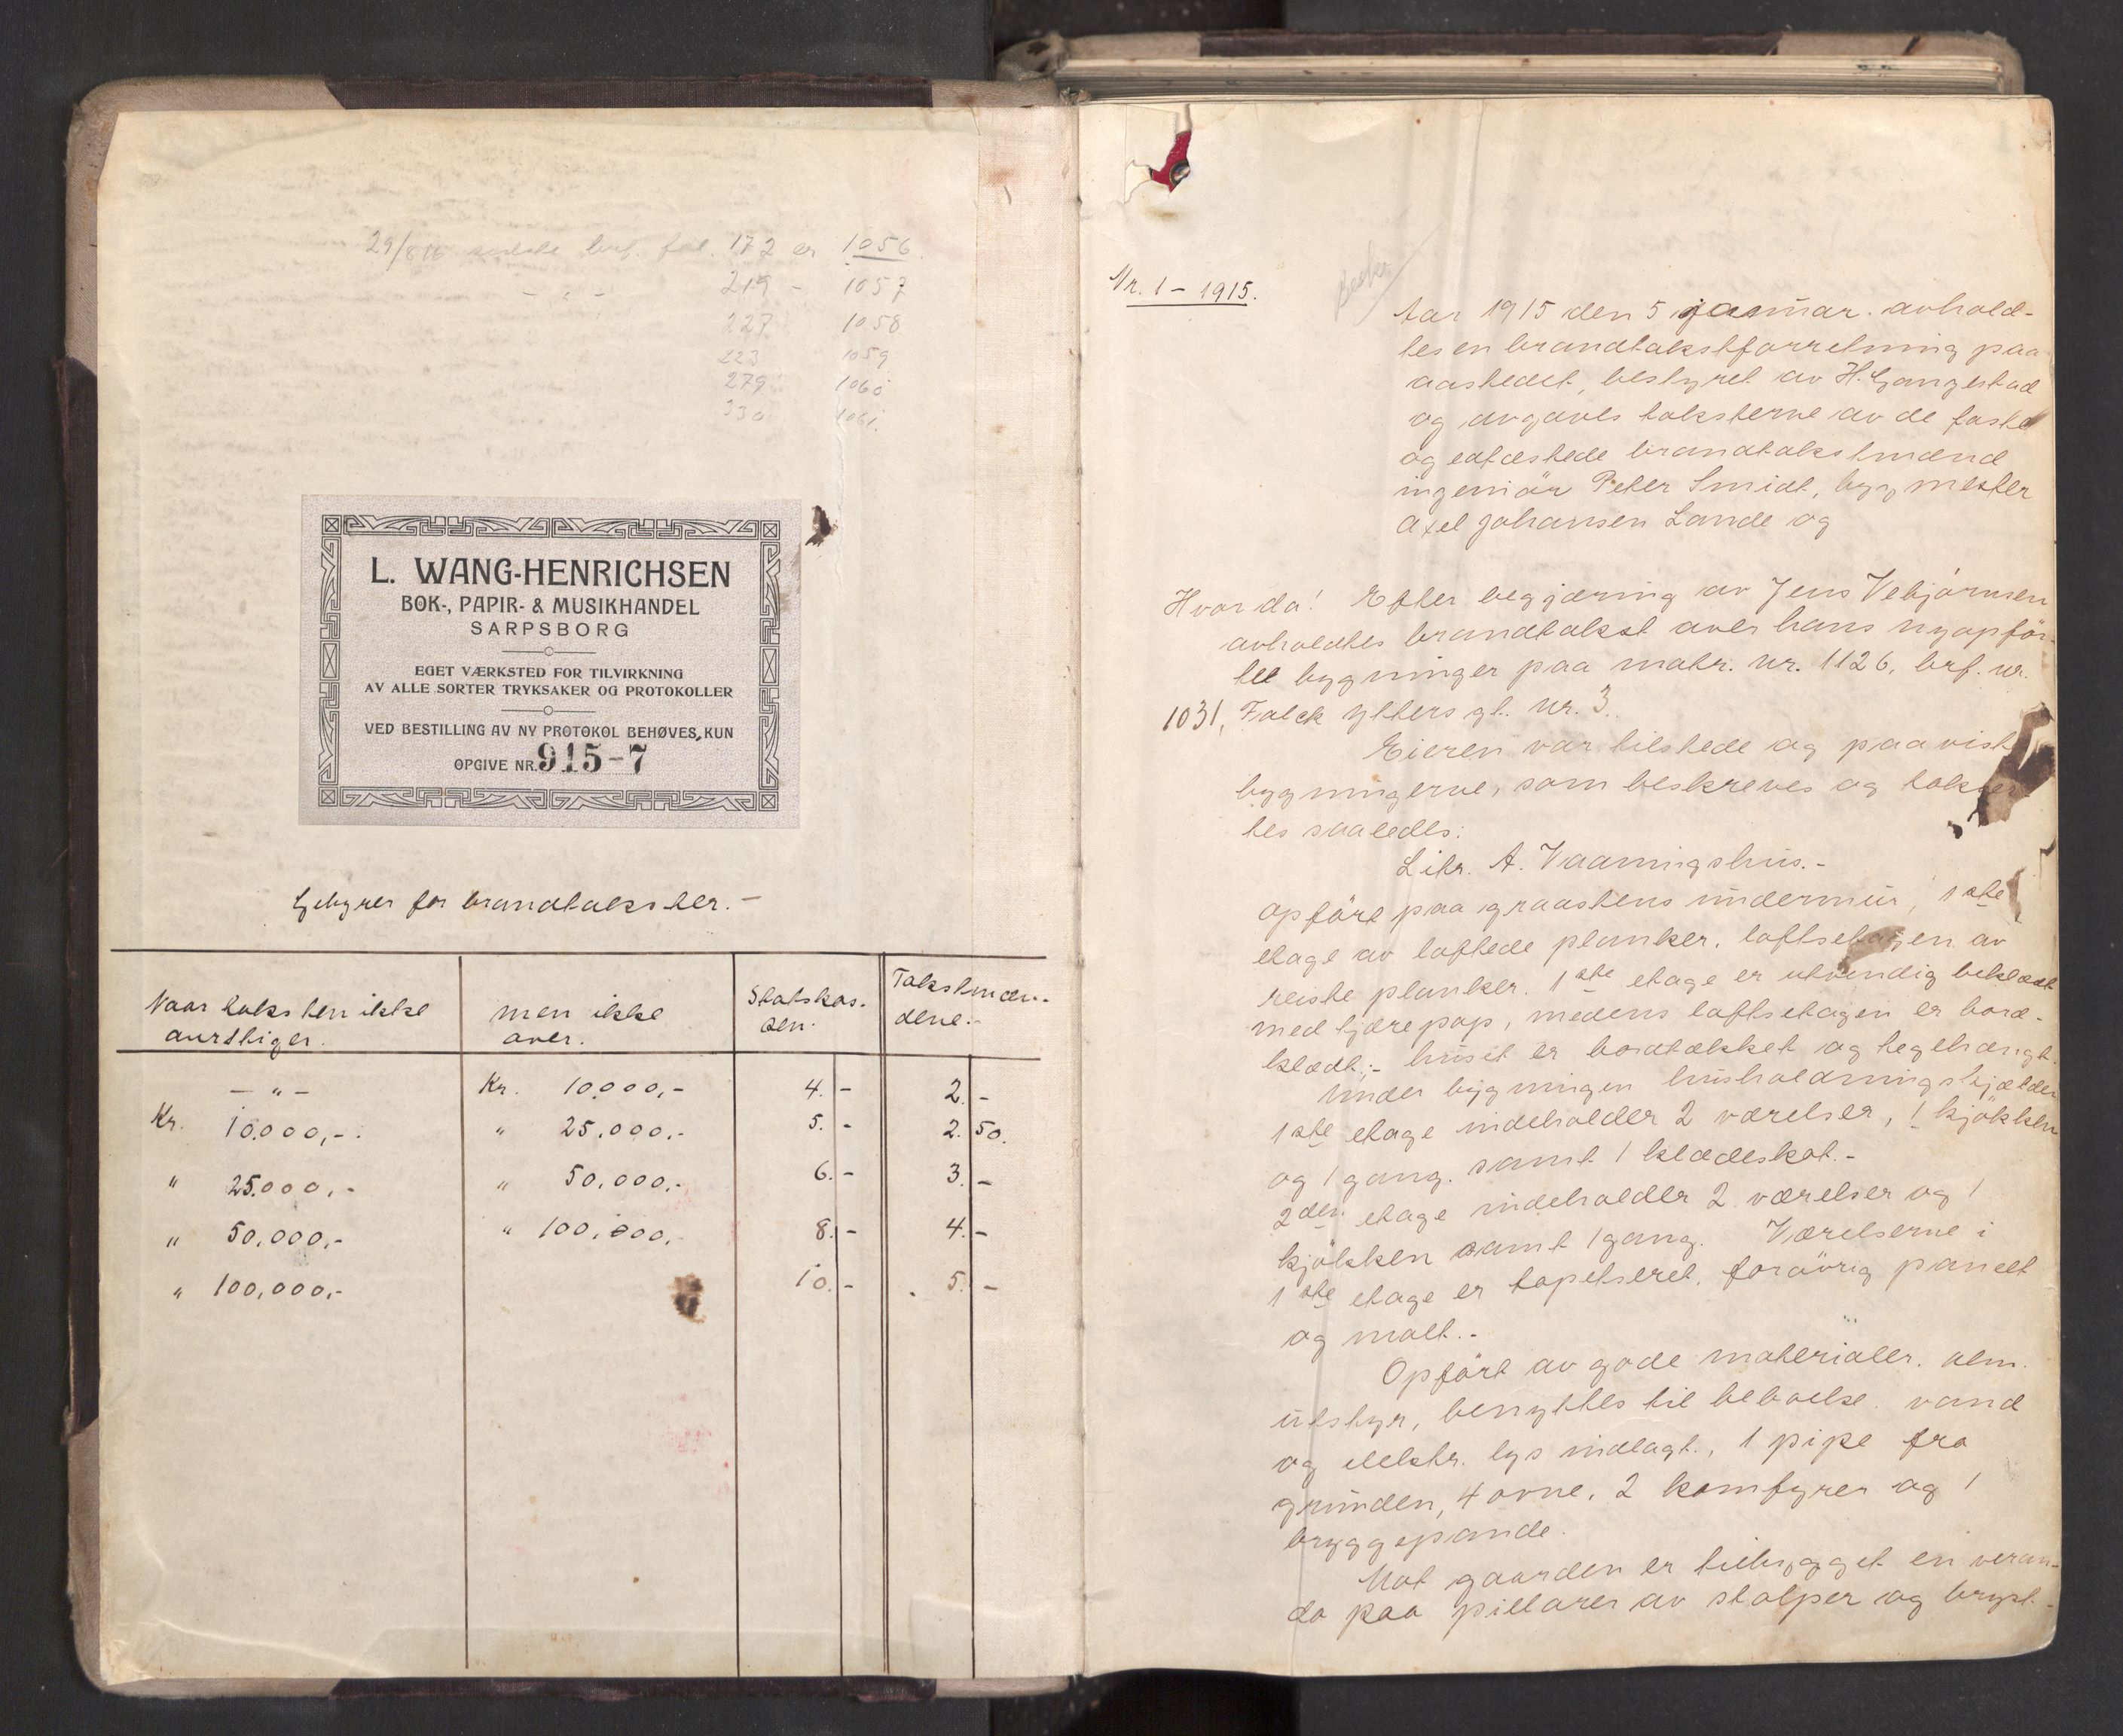 29/8 16 sidste brf. fol. 172 er 1056
- " - 219 - 1057
227 1058
223 1059
279 1060
330 1061.
L. WANG-HENRICHSEN
BOK-, PAPIR- & MUSIKHANDEL
SARPSBORG
EGET VÆRKSTED FOR TILVIRKNING
AV ALLE SORTER TRYKSAKER OG PROTOKOLLER
VED BESTILLING AV NY PROTOKOL BEHØVES KUN
OPGIVE NR. 915-7
Gebyrer for brandtakster. -
Naar taksten ikke men ikke Statskas- Takstmæn-
overstiger. over. sen. dene.-
- " - Kr. 10.000,- 4. - 2. -
Kr. 10.000,-. " 25.000.- 5. - 2. 50.
" 25.000,- " 50,000.- 6. - 3. -
" 50,000,- " 100,000,- 8. - 4. -
" 100,000,- 10. - 5. -
Nr. 1 - 1915.
Aar 1915 den 5 januar. avhold-
tes en brandtakstforretning paa
aastedet, bestyret av H. Gangestad
og avgaves taksterne av de faste
og edfæstede brandtakstmænd
ingeniör Peter Smidt, byggmester
Axel Johansen Lande og
Hvorda! Efter begjæring av Jens Vebjörnsen
avholdtes brandtakst over hans nyopför-
te bygninger paa matr. nr. 1126, brf. nr.
1031, Falck Ytters gt. nr. 3.
Eieren var tilstede og paaviste
bygningerne, som beskreves og takser-
tes saaledes:
Litr. A. Vaaningshus.-
opfört paa graastens undermur, 1ste
etage av laftede planker, loftsetagen av
reiste planker. 1ste etage er utvendig beklædt
med tjærepap, medens loftsetagen er bord-
klædt.- huset er bordtækket og teglhængt.
Under bygningen husholdningskjælder
1ste etage indeholder 2 værelser, 1 kjökken
og 1 gang. samt 1 klædeskot.-
2den etage indeholder 2 værelser og 1
kjökken samt 1 gang. Værelserne i
1ste etage er tapetseret, forövrig panelt
og malt.-
Opfört av gode materialer. alm.
utstyr, benyttes til beboelse. vand
og elektr. lys indlagt., 1 pipe fra
grunden, 4 ovne, 2 komfyrer og 1
bryggepande.
Mot gaarden er tilbygget en veran-
da paa pillarer av stolper og bryst-